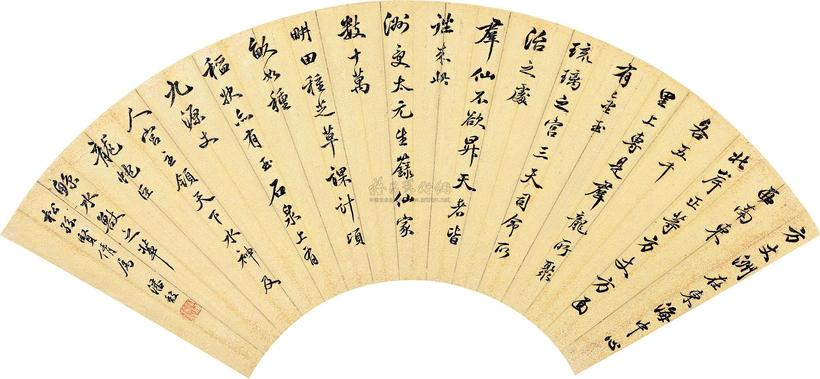 方丈洲在東海中心
西南東
北岸正等方丈方面
各五千
里上專是羣龍所聚
有金玉
琉璃之宫三天司命所
治之處
羣仙不欲昇天者皆
往來此
洲受太元生籙仙家
數十萬
畊田種芝草課計頃
畝如種
稻狀亦有玉石泉上有
九源丈
人宫主領天下水神及
龍虵巨
鯨水獸之輩
賢倩屬